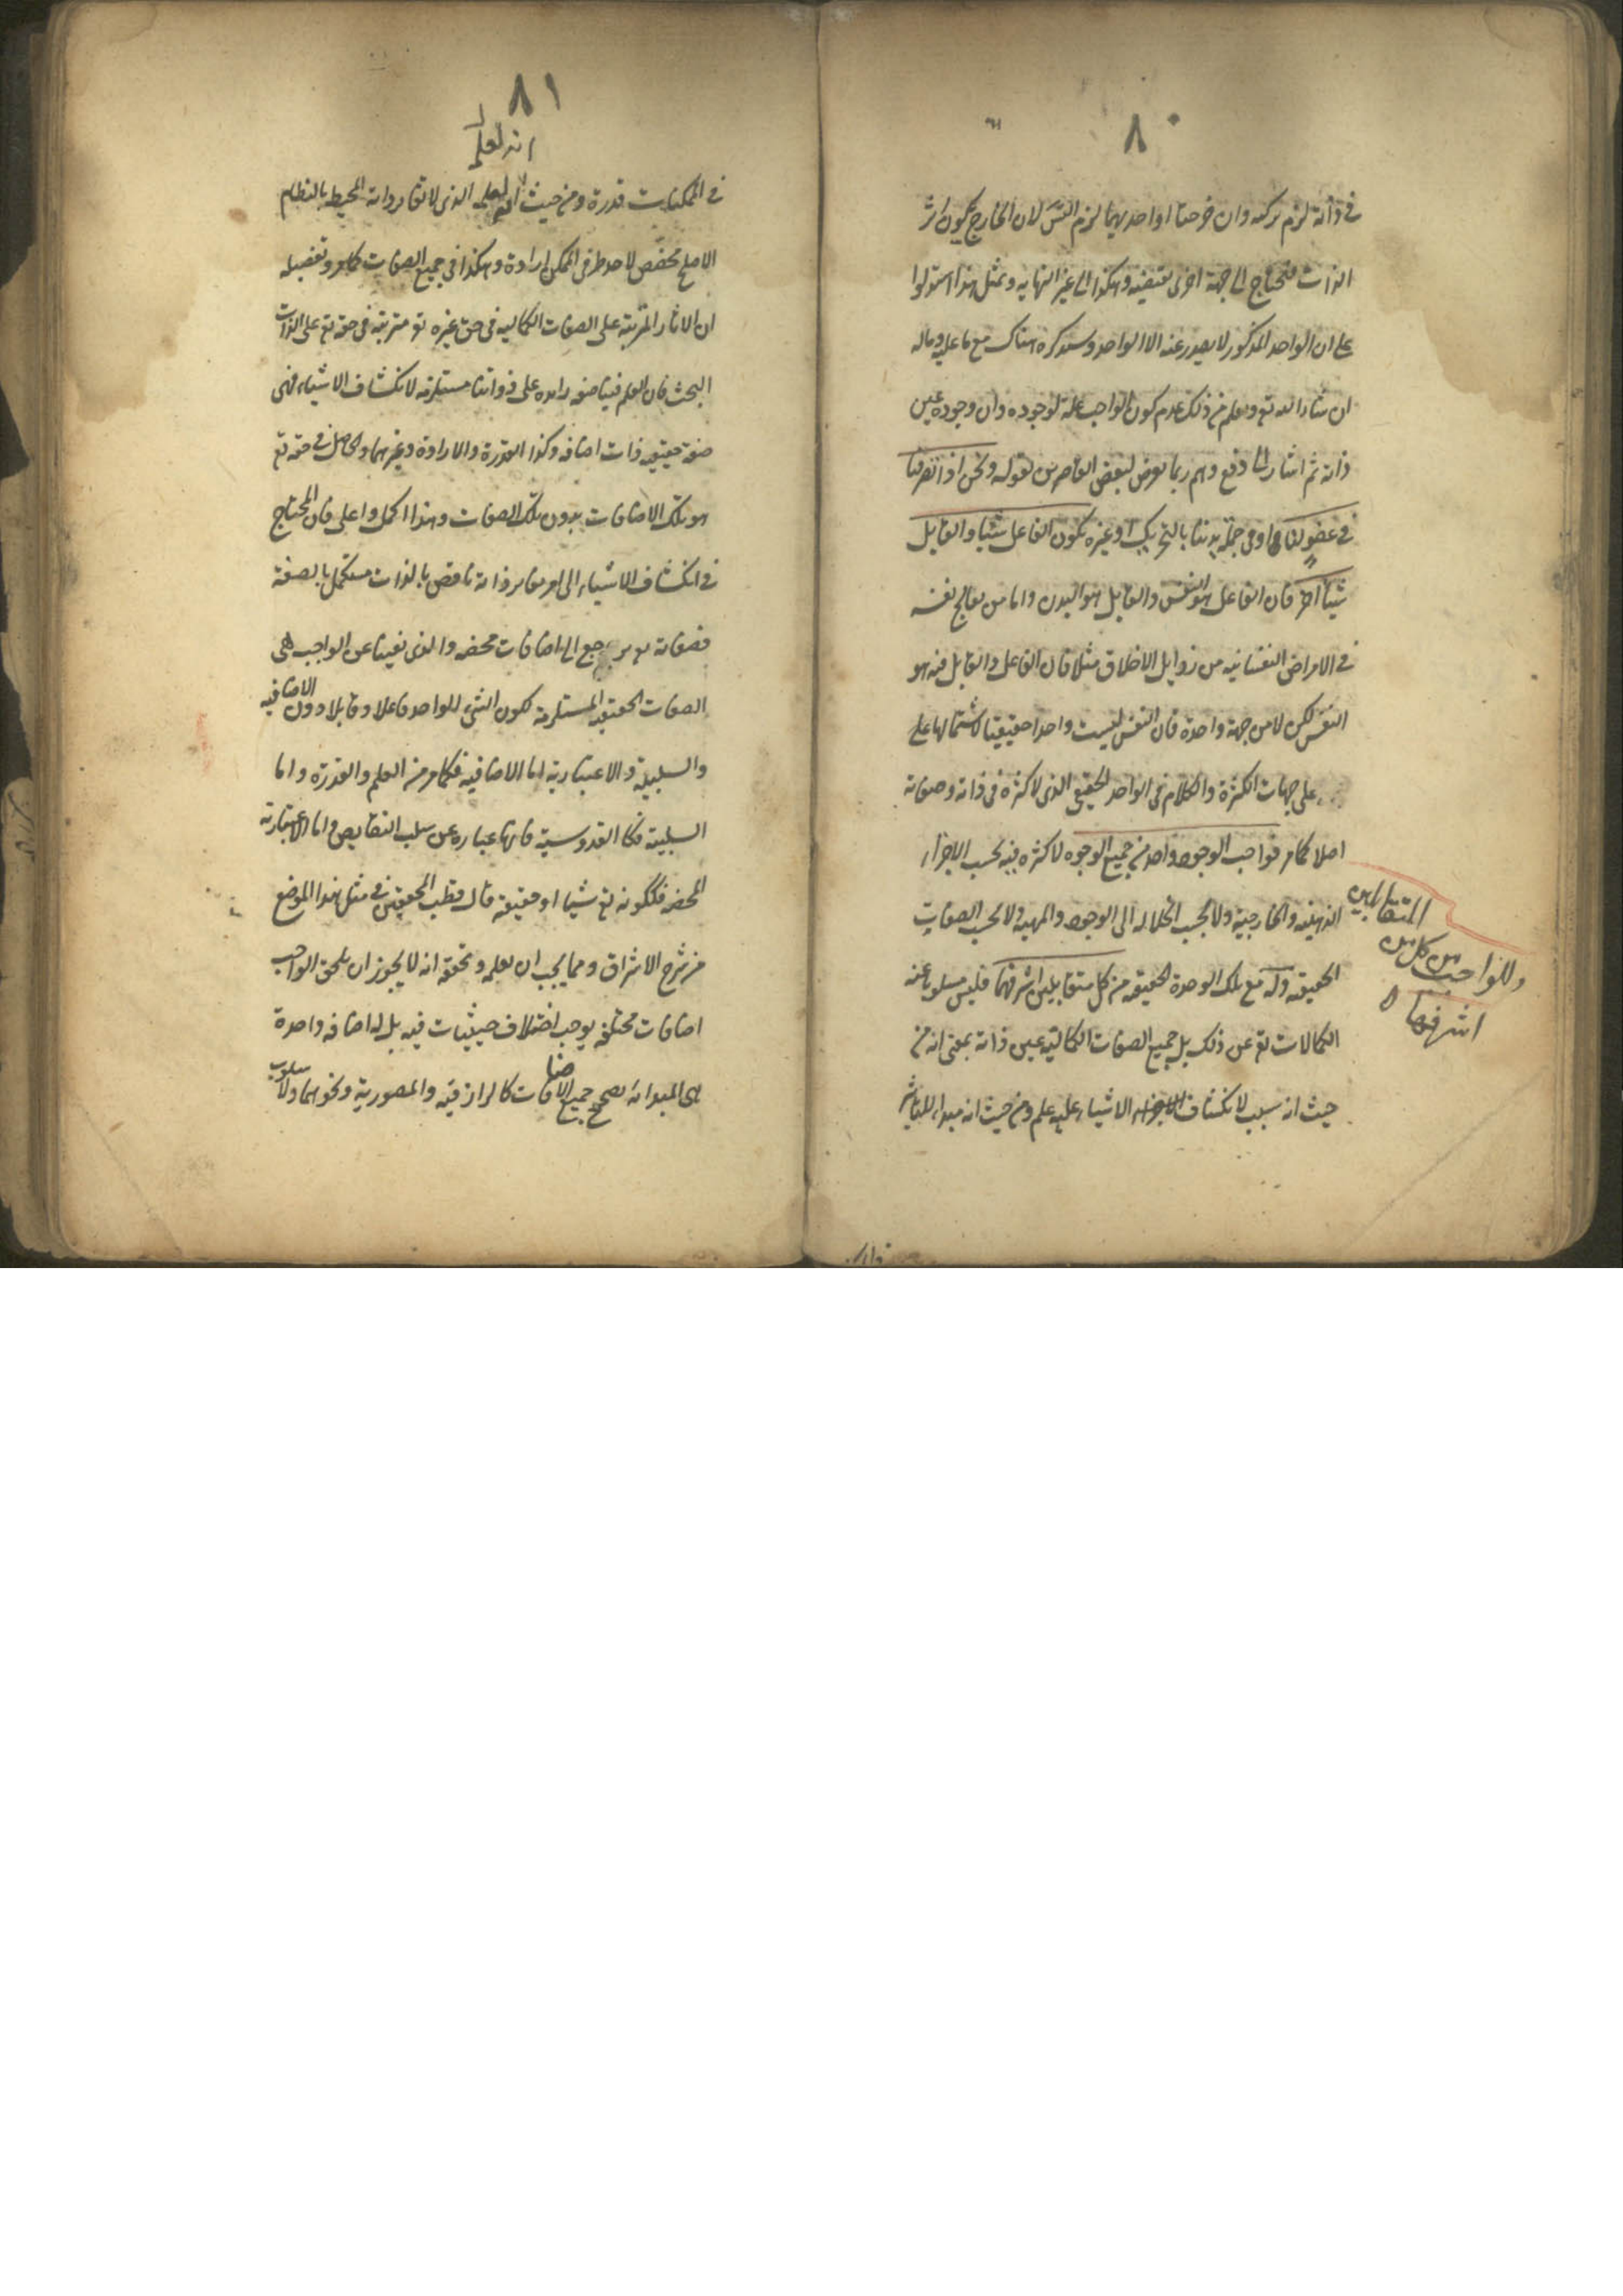 ٨٠
في ذاته لزم تركبه وان فرضنا او احديهما لزم التس لان الخارج يكون اثر
الذات فيحتاج الى جهة اخرى تقتضيه وهكذا الى غير النهايه وبمثل هذا استدلوا
على ان الواحد المذكور لا يصدر عنه الا الواحد وسنذكره هناك مع ما عليه وماله
ان شاء الله تع ويعلم من ذلك عدم كون الواجب علة لوجوده وان وجوده عين
ذاته ثم اشار الى دفع وهم ربما يعرض لبعض القاصرين بقوله ونحن اذا تصرفنا
في عضو لنا او في جملة بدننا بالتحريك او غيره يكون الفاعل شيئا والقابل
شيئا اخر فان الفاعل هو النفس والقابل هو البدن واما من يعالج نفسه
في الامراض النفسانيه من رذايل الاخلاق مثلا فان الفاعل والقابل فيه هو
النفس لكن لا من جهة واحدة فان النفس ليست واحدا حقيقيا لاشتمالها على
على جهات الكثرة والكلام في الواحد الحقيقي الذي لا كثرة في ذاته وصفاته
اصلا كما مر فواجب الوجود واحد من جميع الوجوه لا كثره فيه بحسب الاجزاء
الذهنيه والخارجية ولا بحسب انحلاله الى الوجود والمهية ولا بحسب الصفات
الحقيقيه وله مع تلك الوحدة الحقيقيه من كل متقابلين اشرفهما فليس مسلوبا عنه
الكمالات تع عن ذلك بل جميع الصفات الكماليه عين ذاته بمعنى انه من
حيث انه سبب لانكشاف الاشياء عليه علم ومن حيث انه مبدا للتاثير
وللواجب من كل من
المتقابلين
اشرفهما
٨١
انه لعلمه
في الممكنات قدرة ومن حيث انه لعلمه الذي لا تغاير ذاته المحيط بالنظام
الاصلح مخصص لاحد طرفي الممكن ارادة وهكذا في جميع الصفات كما مر وتفصيله
ان الاثار المترتبة على الصفات الكماليه في حق غيره تع مترتبة في حقه تع على الذات
البحت فان العلم فينا صفه زايده على ذواتنا مستلزمه لانكشاف الاشياء فهي
صفة حقيقيه ذات اضافه وكذا القدرة والارادة وغيرهما والحاصل في حقه تع
هو تلك الاضافات بدون تلك الصفات وهذا اكمل واعلى فان المحتاج
في انكشاف الاشياء الى امر مغاير ذاته ناقص بالذات مستكمل بالصفة
فصفاته تع يرجع الى اضافات محضه والذى نفينا عن الواجب هى
الصفات الحقيقيه المستلزمة لكون الشئ الواحد فاعلا وقابلا دون الاضافيه
والسلبيه والاعتباريه اما الاضافيه فكما مر من العلم والقدرة واما
السلبية فكا القدوسية فانها عباره عن سلب النقايص واما الاعتبارية
المحضه فككونه تع شيئا او حقيقه قال قطب المحققين في مثل هذا الموضع
من شرح الاشراق ومما يجب ان يعلم ويحققه انه لا يجوز ان يلحق الواجب
اضافات مختلفه يوجب اختلاف حيثيات فيه بل له اضافه واحدة
هى المبدائه يصحح جميع الاضافات كالرازقيه والمصورية ونحوهما ولا سلوب